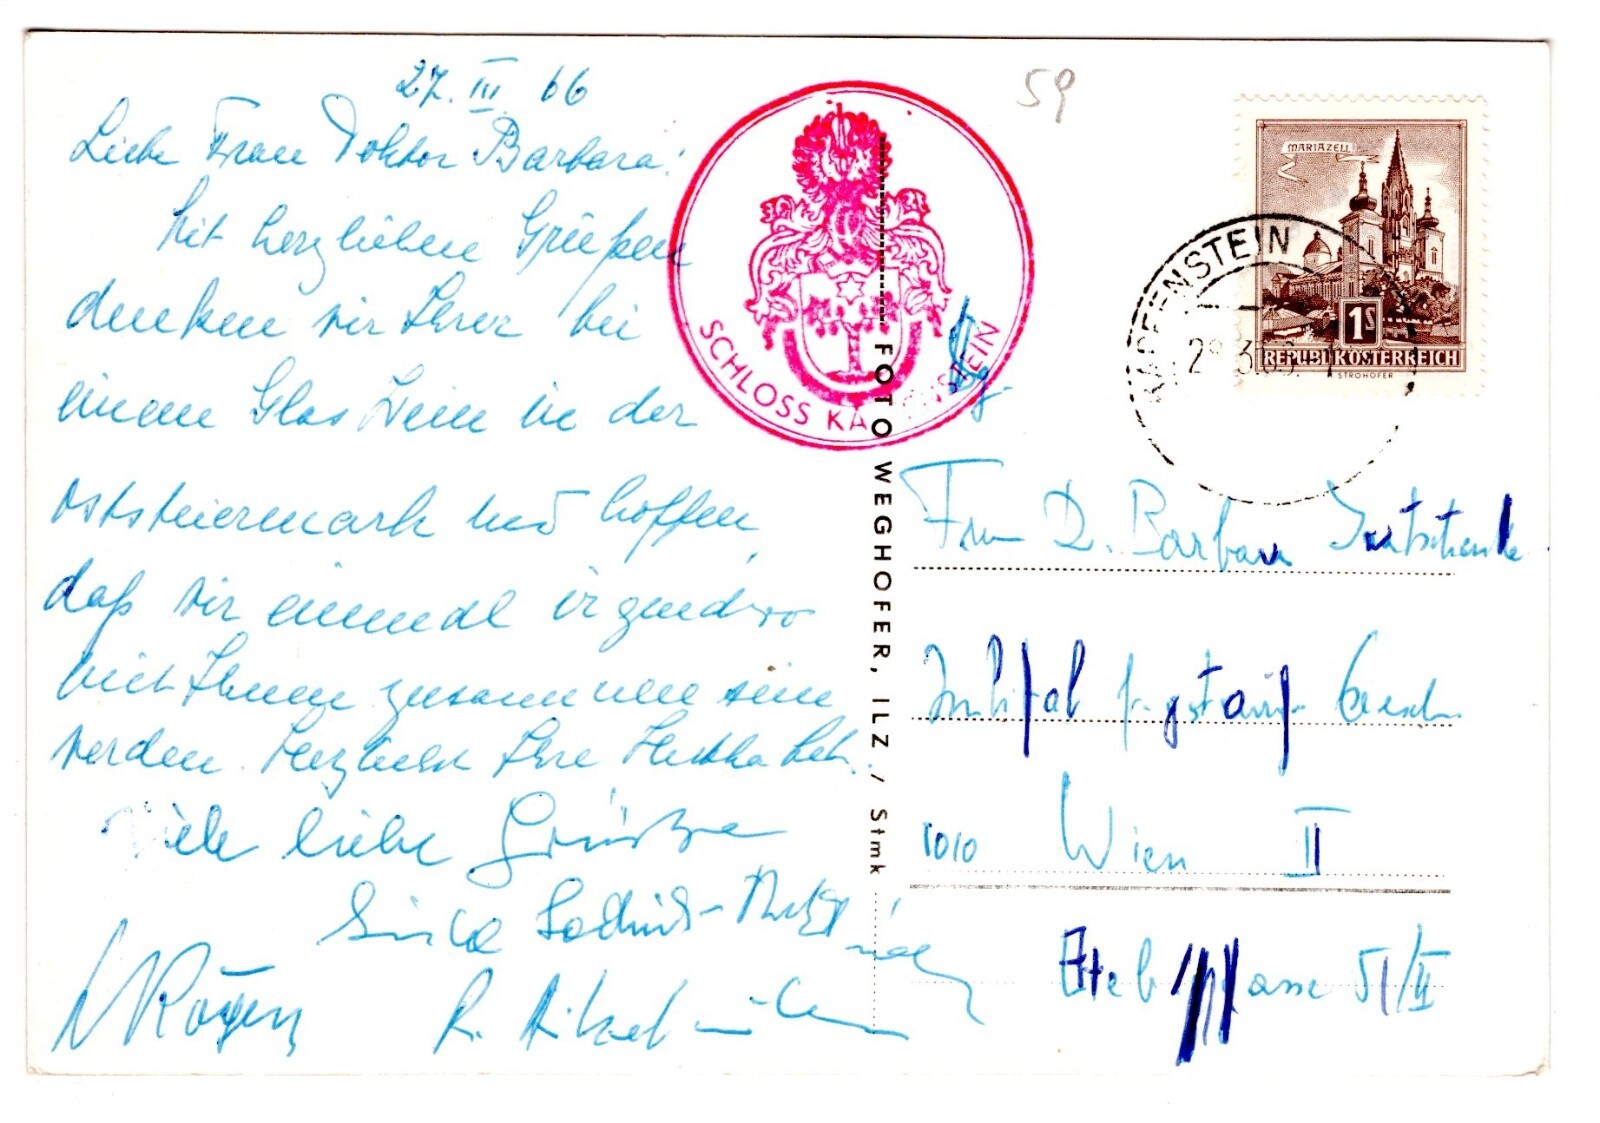 27. III 66
Liebe Frau Doktor Barbara!
Mit herzlichen Grüßen
denken wir Ihrer bei
einem Glas Wein in der
Oststeiermark und hoffen,
daß wir einmal irgendwo
mit Ihnen zusammen sein
werden. Herzlichst Ihre
Viele liebe Grüße
SCHLOSS KAPFENSTEIN
FOTO WEGHOFER, ILZ / Stmk
59
MARIAZELL
1S
REPUBLIK ÖSTERREICH
STROHOFER
KAPFENSTEIN
28.3.66
Frau D. Barbara
1010 Wien II
51/II